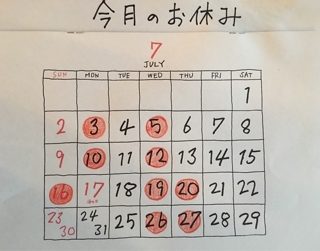 今月のお休み
7
JULY
SUN MON TUE WED THU FRI SAT
1
2 3 4 5 6 7 8
9 10 11 12 13 14 15
16 17 18 19 20 21 22
23 30 24 31 25 26 27 28 29